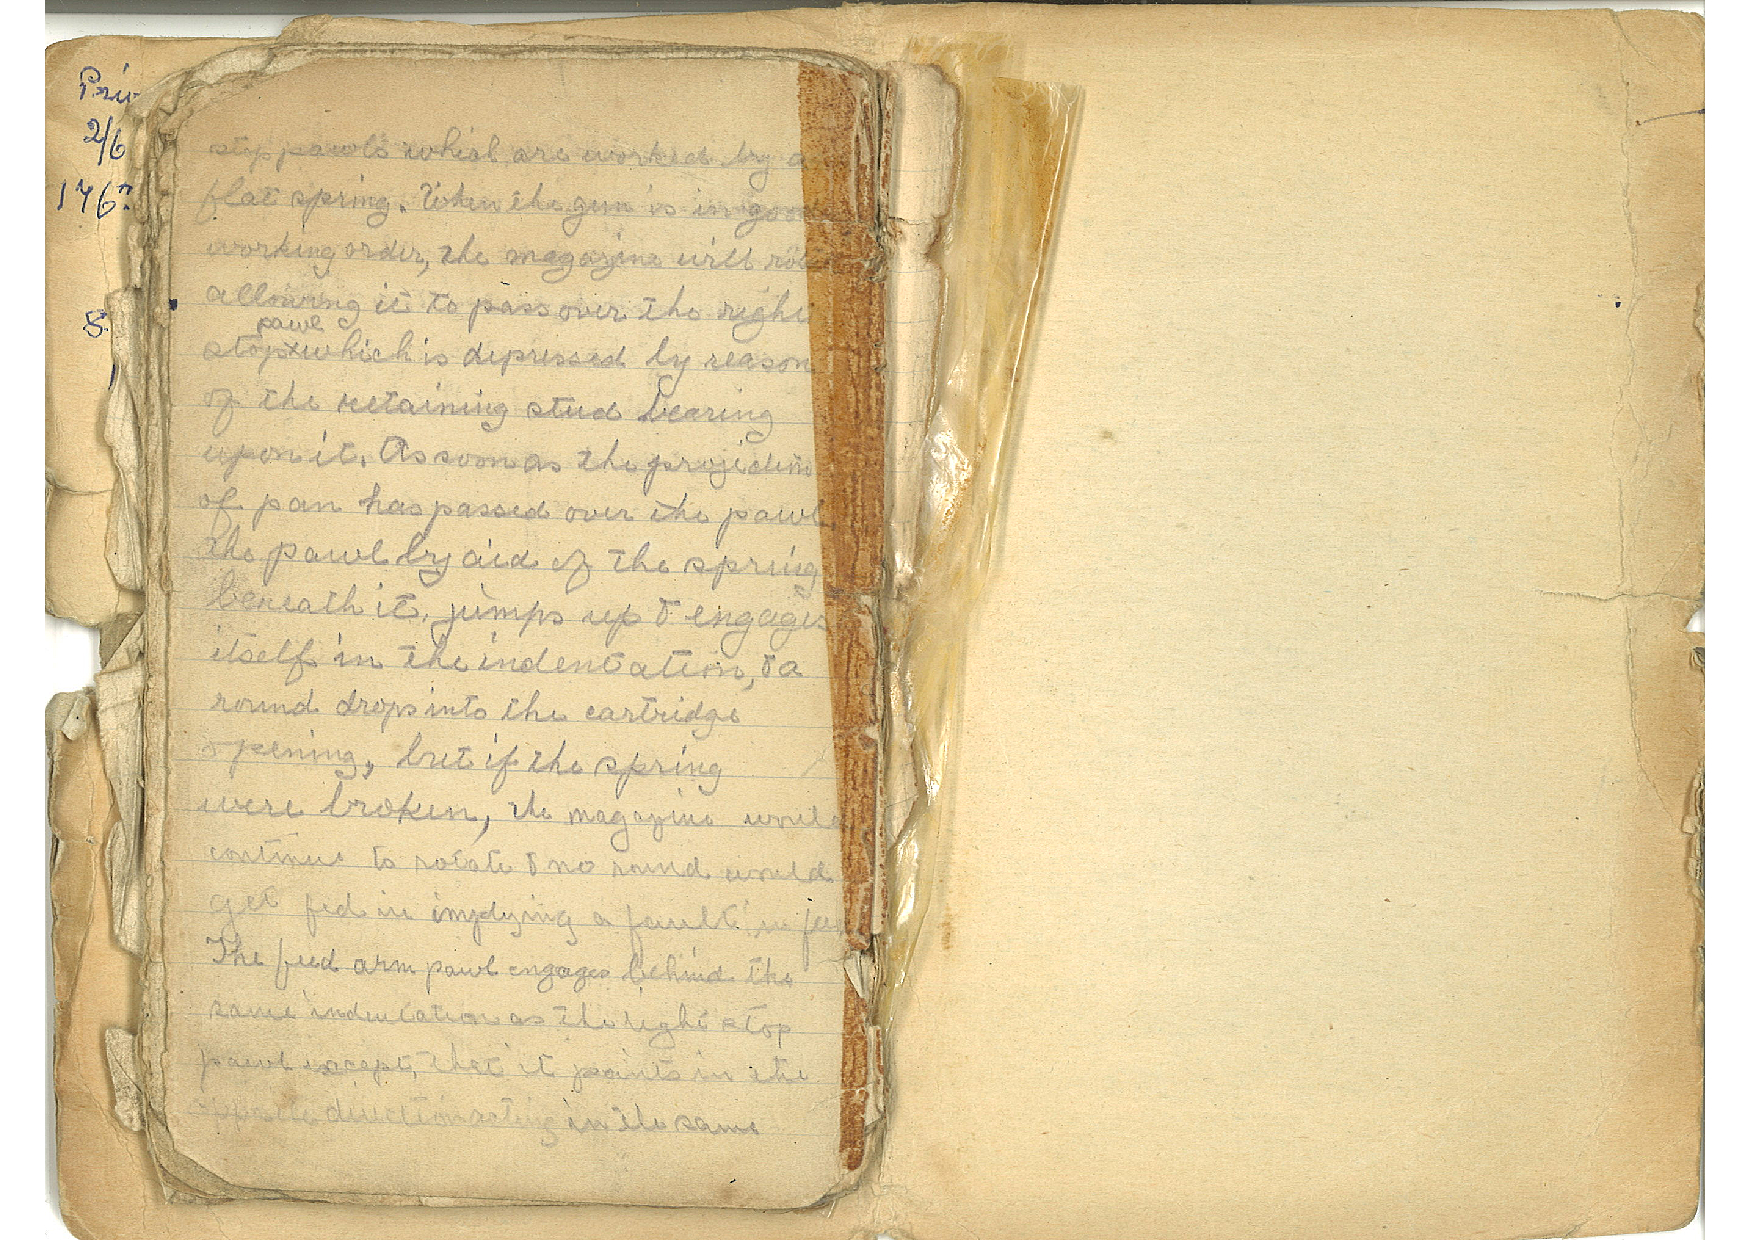 Priv
2/6
1767
S
stop pawls which are worked by a
flat spring. When the gun is in good
working order, the magazine will rot
allowing it to pass over the right
pawl
stop x which is depressed by reason
of the retaining stud bearing
upon it. As soon as the projection
of pan has passed over the pawl
the pawl by aid of the spring
beneath it, jumps up & engages
itself in the indentation, & a
round drops into the cartridge
opening, but if the spring
were broken, the magazine would
continue to rotate & no round would
get fed in implying a fault in feed
The feed arm pawl engages behind the
same indentation as the right stop
pawl except, that it points in the
opposite direction acting in the same